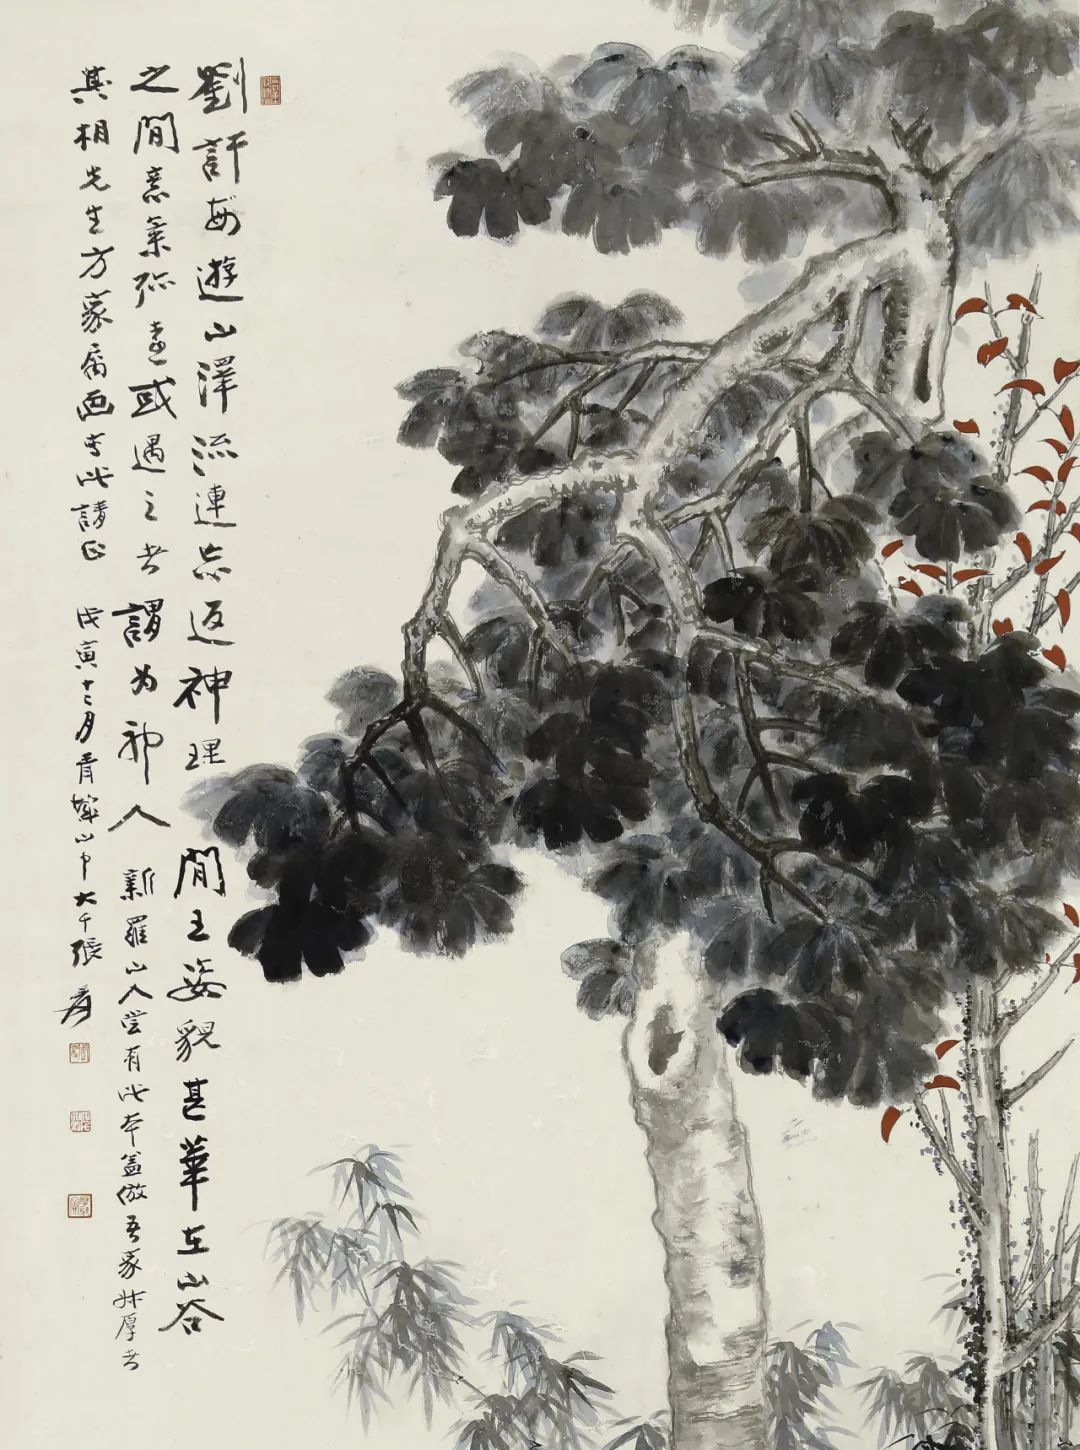 劉訏每遊山澤流連忘返神理閒正姿貌甚華在山谷
之間意氣弥遠或遇之者謂為神人 新羅山人嘗有此本蓋倣吾家叔厚者
其相先生方家属画寫此請正 戊寅十二月青城山中大千張爰